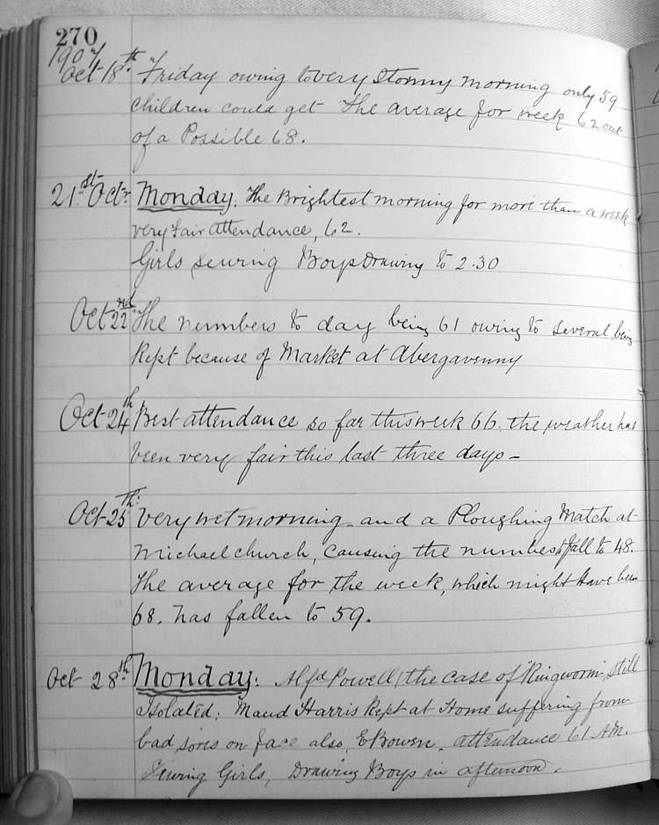 270
1907
Oct 18th Friday owing to very Stormy morning only 59
children could get The average for week 62 out
of a Possible 68.
21st Octr Monday. The Brightest morning for more than a week
very fair attendance, 62.
Girls sewing Boys Drawing to 2.30
Oct 22nd The numbers to day being 61 owing to several being
Kept because of Market at Abergavenny
Oct 24th Best attendance so far this week 66. the weather has
been very fair this last three days -
Oct 25Th: Very wet morning and a Ploughing Match at
Michaelchurch, causing the numbers fall to 48.
The average for the week, which might have been
68. has fallen to 59.
Oct 28th Monday: Alfd Powell, the case of Ringworm, still
Isolated; Maud Harris Kept at Home suffering from
bad sores on face also, E Bowen. attendance 61 A.M.
Sewing Girls, Drawing Boys in afternoon.